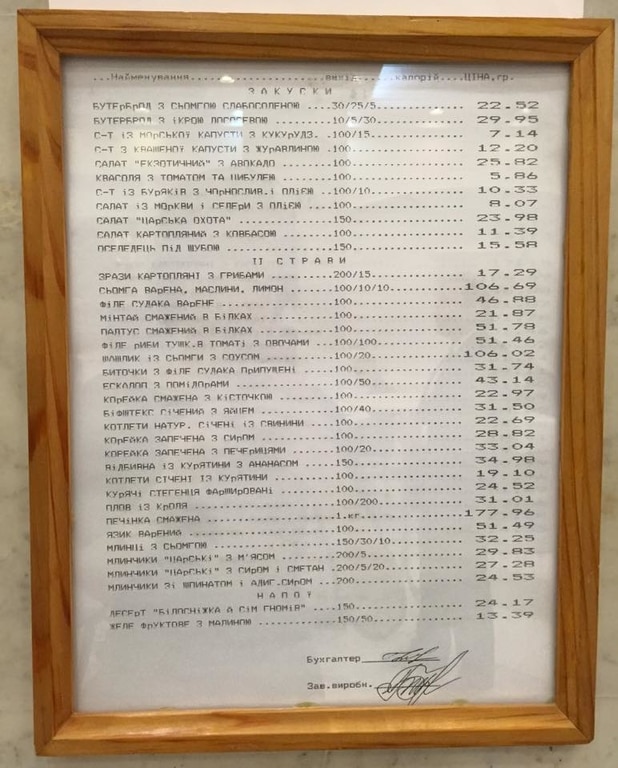 ...Найменування....................вихід.....калорій....ЦІНА,гр.
З А К У С К И
БУТЕРБРОД З СЬОМГОЮ СЛАБОСОЛЕНОЮ ....30/75/5............... 22.52
БУТЕРБРОД З ІКРОЮ ЛОСОСЕВОЮ .........10/5/30............... 29.95
С-Т ІЗ МОРСЬКОЇ КАПУСТИ З КУКУРУДЗ. .100/15................ 7.14
С-Т З КВАШЕНОЇ КАПУСТИ З ЖУРАВЛИНОЮ .100................... 12.20
САЛАТ "ЕКЗОТИЧНИЙ" З АВОКАДО ........100................... 25.82
КВАСОЛЯ З ТОМАТОМ ТА ЦИБУЛЕЮ ........100................... 5.86
С-Т ІЗ БУРЯКІВ З ЧОРНОСЛИВ.І ОЛІЄЮ ..100/10................ 10.33
САЛАТ ІЗ МОРКВИ І СЕЛЕРИ З ОЛІЄЮ ....100................... 8.07
САЛАТ "ЦАРСЬКА ОХОТА" ...............150................... 23.98
САЛАТ КАРТОПЛЯНИЙ З КОВБАСОЮ ........100................... 11.39
ОСЕЛЕДЕЦЬ ПІД ШУБОЮ .................150................... 15.58
ІІ С Т Р А В И
ЗРАЗИ КАРТОПЛЯНІ З ГРИБАМИ ..........200/15................ 17.29
СЬОМГА ВАРЕНА, МАСЛИНИ, ЛИМОН .......100/10/10.............106.69
ФІЛЕ СУДАКА ВАРЕНЕ ..................100................... 46.88
МІНТАЙ СМАЖЕНИЙ В БІЛКАХ ............100................... 21.87
ПАЛТУС СМАЖЕНИЙ В БІЛКАХ ............100................... 51.78
ФІЛЕ РИБИ ТУШК.В ТОМАТІ З ОВОЧАМИ ...100/100............... 51.46
ШАШЛИК ІЗ СЬОМГИ З СОУСОМ ...........100/20................106.02
БИТОЧКИ З ФІЛЕ СУДАКА ПРИПУЩЕНІ .....100................... 31.74
ЕСКАЛОП З ПОМІДОРАМИ ................100/50................ 43.14
КОРЕЙКА СМАЖЕНА З КІСТОЧКОЮ .........100................... 22.97
БІФШТЕКС СІЧЕНИЙ З ЯЙЦЕМ ............100/40................ 31.50
КОТЛЕТИ НАТУР. СІЧЕНІ ІЗ СВИНИНИ ....100................... 22.69
КОРЕЙКА ЗАПЕЧЕНА З СИРОМ ............100................... 28.82
КОРЕЙКА ЗАПЕЧЕНА З ПЕЧЕРИЦЯМИ .......100/20................ 33.04
ВІДБИВНА ІЗ КУРЯТИНИ З АНАНАСОМ .....150................... 34.98
КОТЛЕТИ СІЧЕНІ ІЗ КУРЯТИНИ ..........100................... 19.10
КУРЯЧІ СТЕГЕНЦЯ ФАРШИРОВАНІ .........100................... 24.52
ПЛОВ ІЗ КРОЛЯ .......................100/200............... 31.01
ПЕЧІНКА СМАЖЕНА .....................1.кг..................177.96
ЯЗИК ВАРЕНИЙ ........................100................... 51.49
МЛИНЦІ З СЬОМГОЮ ....................150/30/10............. 32.25
МЛИНЧИКИ "ЦАРСЬКІ" З М'ЯСОМ .........200/5................. 29.83
МЛИНЧИКИ "ЦАРСЬКІ" З СИРОМ І СМЕТАН .200/5/20.............. 27.28
МЛИНЧИКИ ЗІ ШПИНАТОМ І АДИГ.СИРОМ ...200................... 24.53
Н А П О Ї
ДЕСЕРТ "БІЛОСНІЖКА А СІМ ГНОМІВ" ....150................... 24.17
ЖЕЛЕ ФРУКТОВЕ З МАЛИНОЮ .............150/50................ 13.39
Бухгалтер
Зав.виробн.